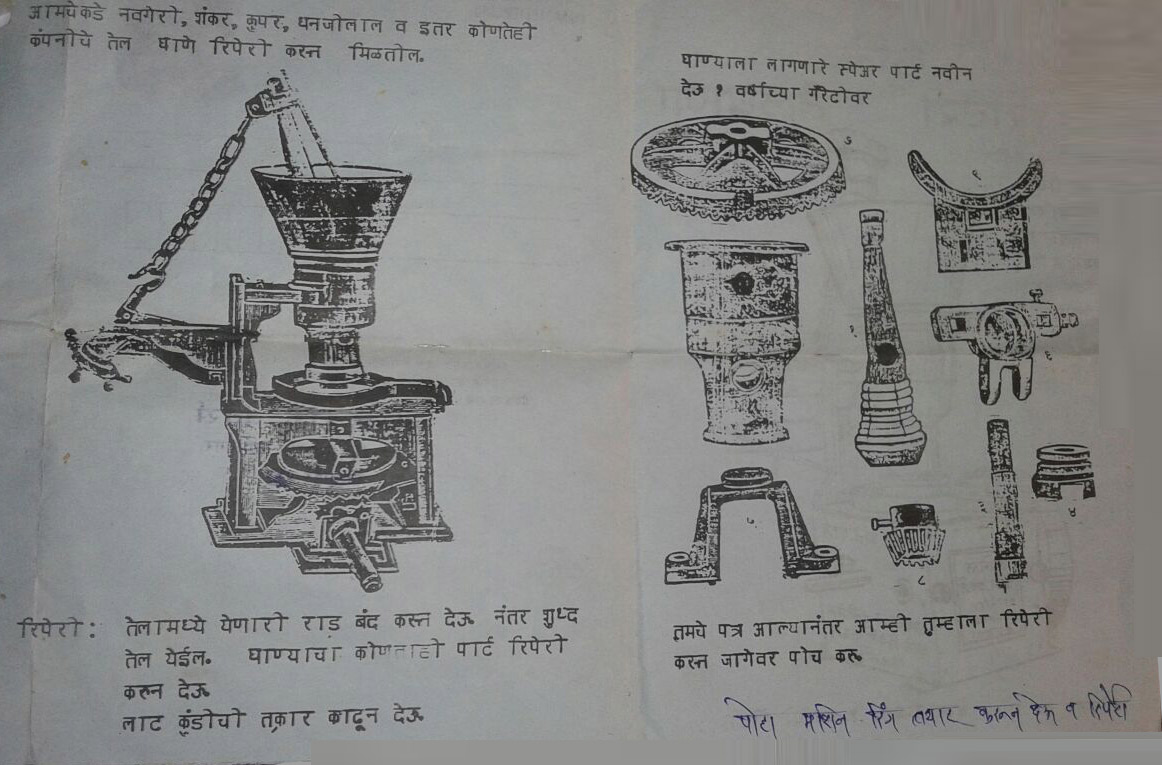 आमचेकडे नवगेरी, शंकर, कुपर, धनजीलाल व इतर कोणतेही
कंपनीचे तेल घाणे रिपेरी करुन मिळतील.
घाण्याला लागणारे स्पेअर पार्ट नवीन
देऊ १ वर्षाच्या गॅरंटीवर
रिपेरी: तेलामध्ये येणारी राड बंद करुन देऊ नंतर शुध्द
तेल येईल. घाण्याचा कोणताही पार्ट रिपेरी
करुन देऊ
लाट कुंडीची तक्रार काढून देऊ
तुमचे पत्र आल्यानंतर आम्ही तुम्हाला रिपेरी
करुन जागेवर पोच करु
मशिन रिंग तयार करून देऊ व रिपेरी